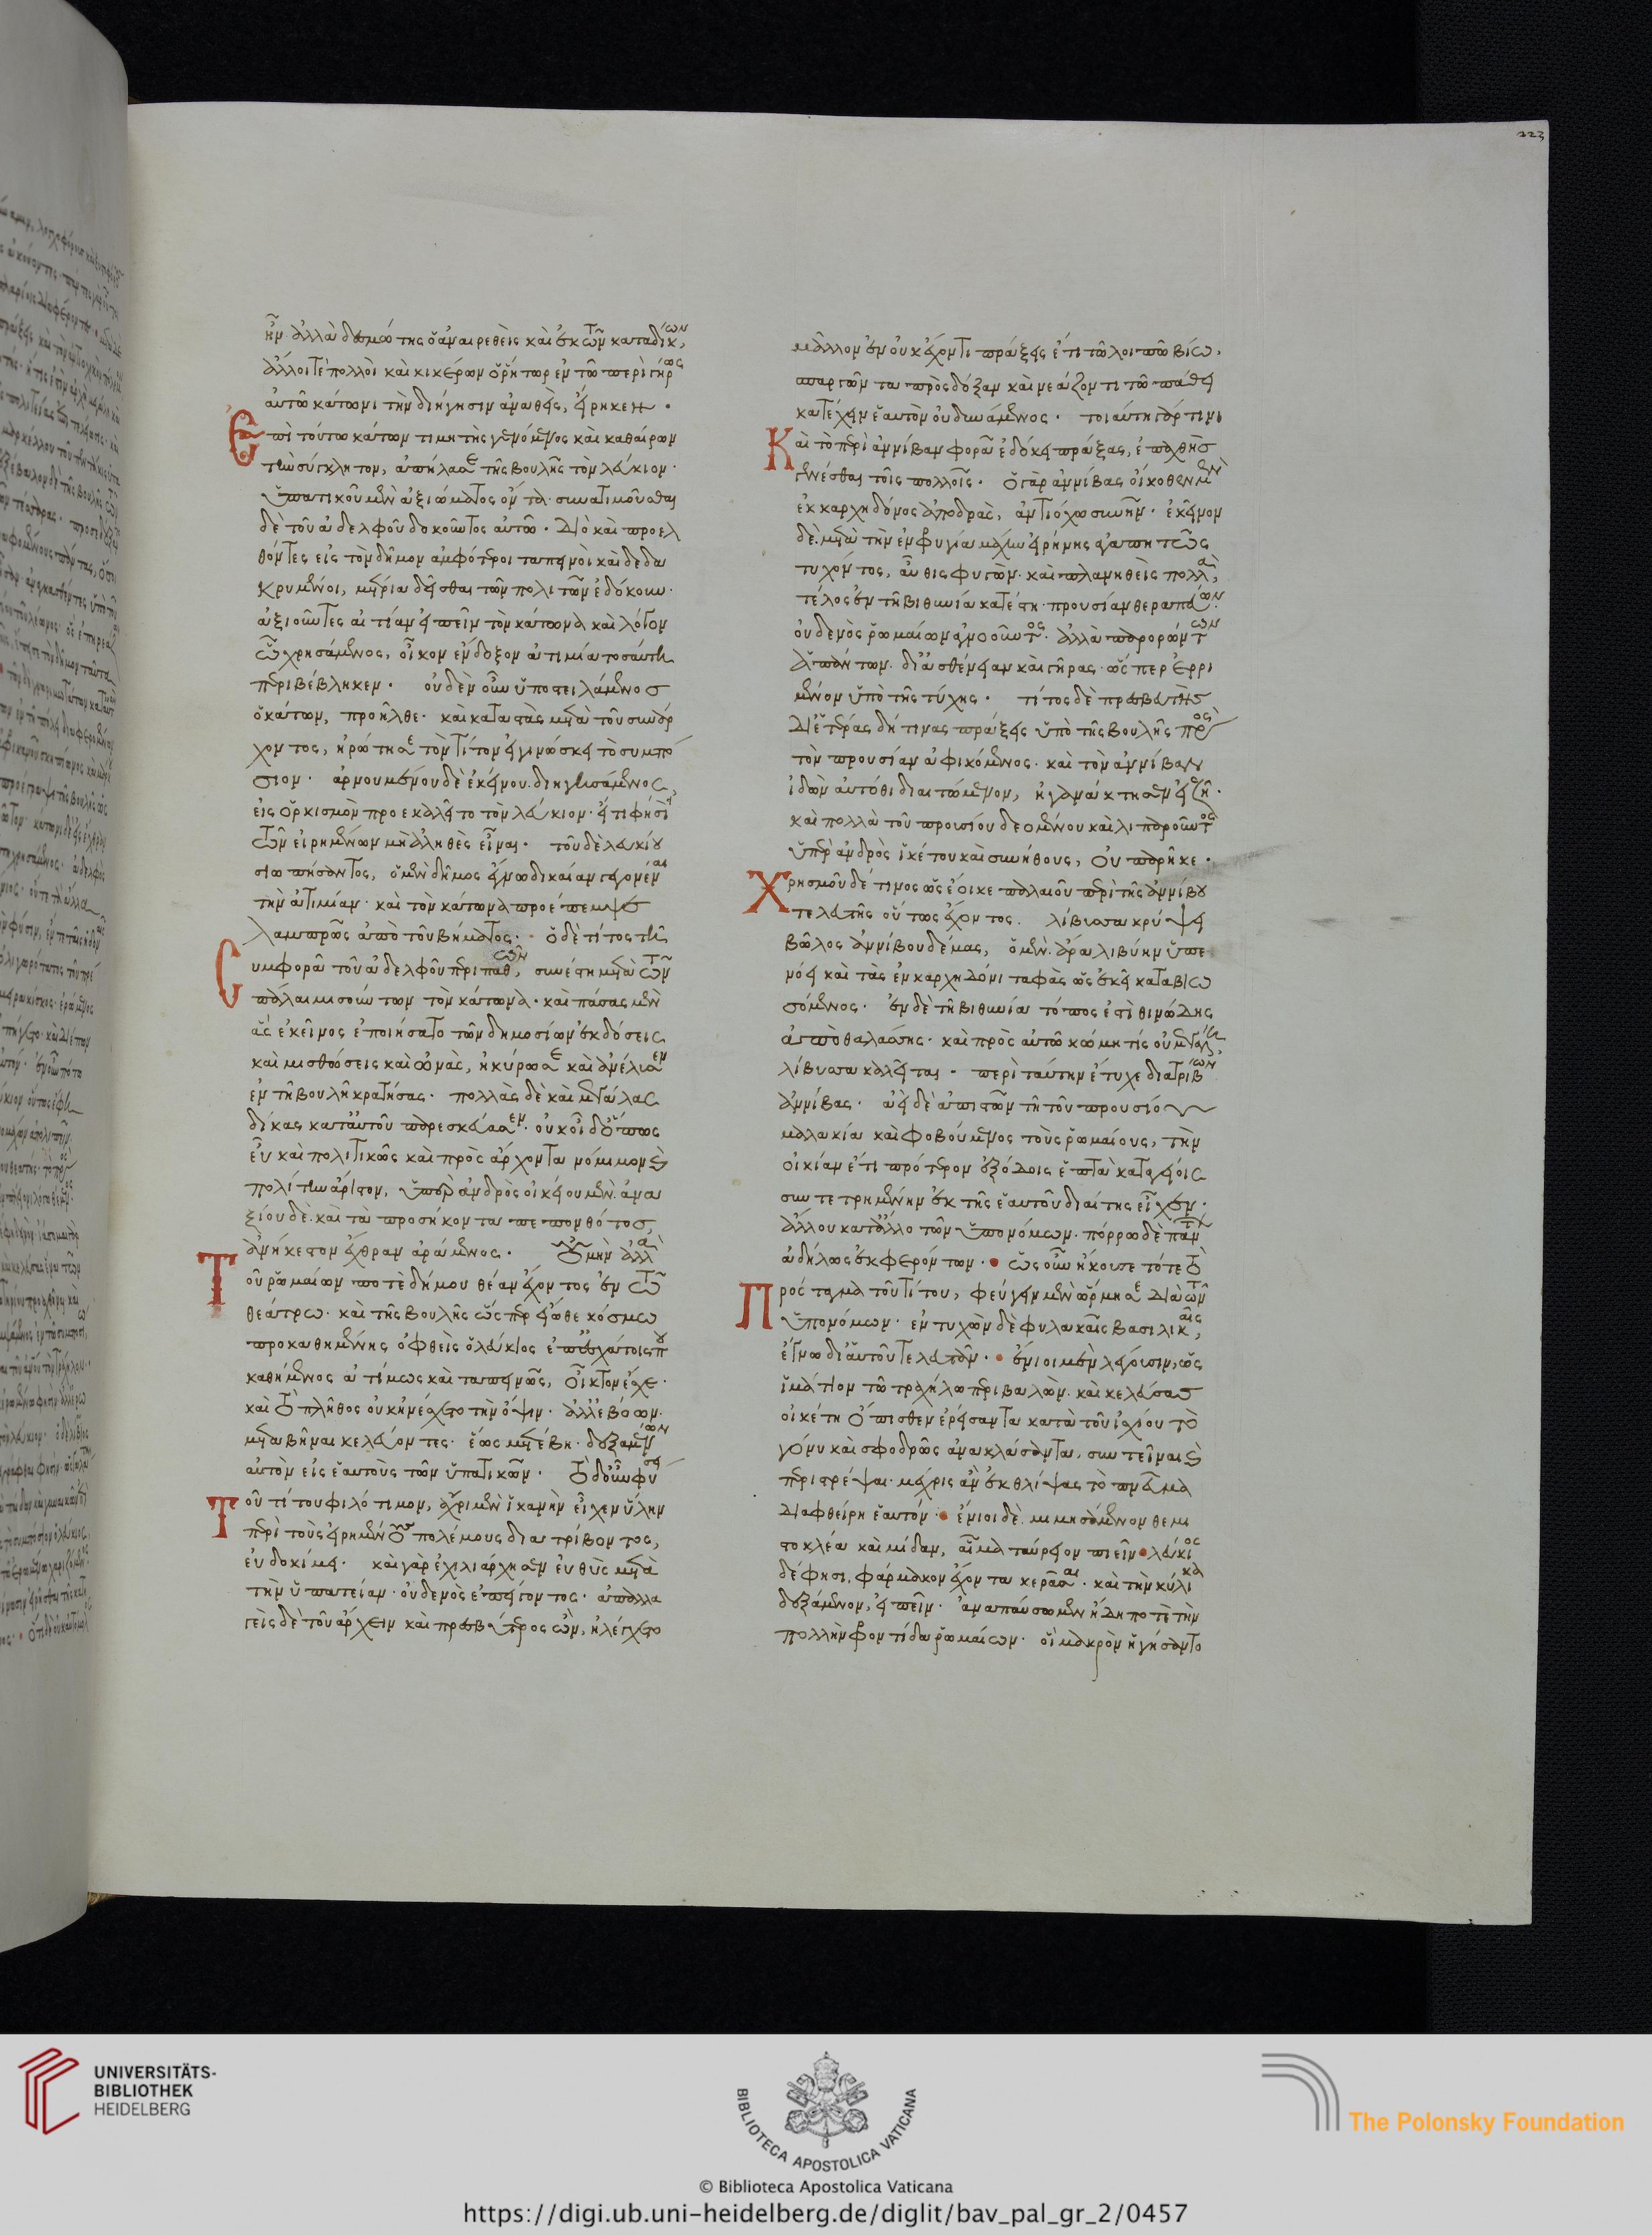 ἦν. ἀλλὰ δεσμώτης ὁ ἀναιρεθεὶς καὶ ἐκ τῶν καταδίκων,
ἄλλοι τὲ πολλοὶ καὶ κικέρων ὁ ῥήτωρ ἐν τῷ περὶ γήρως
αὐτῷ κάτωνι τὴν διήγησιν ἀναθεὶς, εἴρηκεν.
Ἐπὶ τούτω κάτων τιμητὴς γενόμενος καὶ καθαίρων
τὴν σύγκλητον, ἀπήλασε τῆς βουλῆς τὸν λεύκιον.
ὑπατικοῦ μὲν ἀξιώματος ὄντα. συνατιμοῦσθαι
δὲ τοῦ ἀδελφοῦ δοκοῦντος αὐτῷ. Διὸ καὶ προελ
θόντες εἰς τὸν δῆμον ἀμφότεροι ταπεινοὶ καὶ δεδα
κρυμένοι, μέτρια δεῖσθαι τῶν πολιτῶν ἐδόκουν.
ἀξιοῦντες αἰτίαν εἰπεῖν τὸν κάτωνα καὶ λόγον
ᾧ χρησάμενος, οἶκον ἔνδοξον ἀτιμία τοσαύτη
περιβέβληκεν. οὐδὲν οὖν ὑποστειλάμενος
ὁ κάτων, προῆλθε. καὶ καταστὰς μετὰ τοῦ συνάρ
χοντος, ἠρώτησε τὸν τίτον εἰ γινώσκει τὸ συμπό
σιον. ἀρνουμένου δὲ ἐκείνου. διηγησάμενος,
εἰς ὁρκισμὸν προεκαλεῖτο τὸν λεύκιον. εἴ τι φησὶ
τῶν εἰρημένων μὴ ἀληθὲς εἶναι. τοῦ δὲ λευκίου
σιωπήσαντος, ὁ μὲν δῆμος ἔγνω δικαίαν γεγονέναι
τὴν ἀτιμίαν. καὶ τὸν κάτωνα προέπεμψε
λαμπρῶς ἀπὸ τοῦ βήματος. ὁ δὲ τίτος τῇ
Συμφορᾷ τοῦ ἀδελφοῦ περιπαθῶν, συνέστη μετὰ τῶν
πάλαι μισούντων τὸν κάτωνα. καὶ πάσας μὲν
ἃς ἐκεῖνος ἐποιήσατο τῶν δημοσίων ἐκδόσεις
καὶ μισθώσεις καὶ ὠνὰς, ἠκύρωσε καὶ ἀνέλυσεν
ἐν τῇ βουλῇ κρατήσας. πολλὰς δὲ καὶ μεγάλας
δίκας κατ' αὐτοῦ παρεσκεύασεν. οὐκ οἶδ' ὅπως
εὖ καὶ πολιτικῶς καὶ πρὸς ἄρχοντα νόμιμον καὶ
πολίτην ἄριστον, ὑπὲρ ἀνδρὸς οἰκείου μὲν. ἀνα
ξίου δὲ. καὶ τὰ προσήκοντα πεπονθότος,
ἀνήκεστον ἔχθραν ἀράμενος. Οὐ μὴν ἀλλὰ
Τοῦ ῥωμαίων ποτὲ δήμου θέαν ἔχοντος ἐν τῷ
θεάτρω. καὶ τῆς βουλῆς ὥσπερ εἴωθε κόσμω
προκαθημένης ὀφθεὶς ὁ λεύκιος ἐπ' ἐσχάτοις που
καθήμενος ἀτίμως καὶ ταπεινῶς, οἶκτον ἔσχε.
καὶ τὸ πλῆθος οὐκ ἠνέσχετο τὴν ὄψιν. ἀλλ' ἐβόων.
μεταβῆναι κελεύοντες. ἕως μετέβη. δεξαμένων
αὐτὸν εἰς ἑαυτοὺς τῶν ὑπατικῶν. τὸ δ' οὖν φύσει
Τοῦ τίτου φιλότιμον, ἄχρι μὲν ἱκανὴν εἶχεν ὕλην
περὶ τοὺς εἰρημένους πολέμους διατρίβοντος,
εὐδοκίμει. καὶ γὰρ ἐχιλιάρχησεν εὐθὺς μετὰ
τὴν ὑπατείαν. οὐδενὸς ἐπείγοντος. ἀπαλλα
γεὶς δὲ τοῦ ἄρχειν καὶ πρεσβύτερος ὢν, ἠλέγχετο
μᾶλλον ἐν οὐκ ἔχοντι πράξεις ἔτι τῷ λοιπῷ βίω,
σπαργῶντα πρὸς δόξαν καὶ νεάζοντι τῷ πάθει
κατέχειν ἑαυτὸν οὐ δυνάμενος. τοιαύτη γάρ τινι
Καὶ τὸ περὶ ἀννίβαν φορᾷ ἐδόκει πράξας, ἐπαχθὴς
γενέσθαι τοῖς πολλοῖς. ὁ γὰρ ἀννίβας οἴκοθεν μὲν
ἐκ καρχηδόνος ἀποδρὰς, ἀντιόχω συνῆν. ἐκείνου
δὲ. μετὰ τὴν ἐν φρυγία μάχην εἰρήνης ἀγαπητῶς
τυχόντος, αὖθις φυγὼν. καὶ πλανηθεὶς πολλὰ,
τέλος ἐν τῇ βιθυνία κατέστη. προυσίαν θεραπεύων.
οὐδενὸς ῥωμαίων ἀγνοοῦντος. ἀλλὰ παρορώντων
ἁπάντων. δι' ἀσθένειαν καὶ γῆρας. ὥσπερ ἐρρι
μένον ὑπὸ τῆς τύχης. τίτος δὲ πρεσβευτὴς
Δι' ἑτέρας δή τινας πράξεις ὑπὸ τῆς βουλῆς πρὸς
τὸν προυσίαν ἀφικόμενος. καὶ τὸν ἀννίβαν
ἰδὼν αὐτόθι διαιτώμενον, ἠγανάκτησεν εἰ ζῇ.
καὶ πολλὰ τοῦ προυσίου δεομένου καὶ λιπαροῦντος
ὑπὲρ ἀνδρὸς ἱκέτου καὶ συνήθους, οὐ παρῆκε.
Χρησμοῦ δέ τινος ὡς ἔοικε παλαιοῦ περὶ τῆς ἀννίβου
τελευτῆς οὕτως ἔχοντος. λίβυσσα κρύψει
βῶλος ἀννίβου δέμας, ὁ μὲν. ἄρα λιβύην ὑπε
νόει καὶ τὰς ἐν καρχηδόνι ταφὰς ὡς ἐκεῖ καταβιω
σόμενος. ἐν δὲ τῇ βιθυνία τόπος ἐστὶ θινώδης
ἀπὸ θαλάσσης. καὶ πρὸς αὐτῷ κώμη τίς οὐ μεγάλη,
λίβυσσα καλεῖται. περὶ ταύτην ἔτυχε διατρίβων
ἀννίβας. ἀεὶ δὲ ἀπιστῶν τῇ τοῦ προυσίου
μαλακία καὶ φοβούμενος τοὺς ῥωμαίους, τὴν
οἰκίαν ἔτι πρότερον ἐξόδοις ἑπτὰ καταγείοις
συντετρημένην ἐκ τῆς ἑαυτοῦ διαίτης εἶχεν.
ἄλλου κατ' ἄλλο τῶν ὑπονόμων. πόρρω δὲ πάντων
ἀδήλως ἐκφερόντων. ὡς οὖν ἤκουσε τότε τὸ
Πρόσταγμα τοῦ τίτου, φεύγειν μὲν ὥρμησε διὰ τῶν
ὑπονόμων. ἐντυχὼν δὲ φυλακαῖς βασιλικαῖς,
ἔγνω δι' αὑτοῦ τελευτᾶν. ἔνιοι μὲν λέγουσιν, ὡς
ἱμάτιον τῷ τραχήλω περιβαλὼν. καὶ κελεύσας
οἰκέτη ὄπισθεν ἐρείσαντα κατὰ τοῦ ἰσχίου τὸ
γόνυ καὶ σφοδρῶς ἀνακλάσαντα, συντεῖναι καὶ
περιστρέψαι. μέχρις ἂν ἐκθλίψας τὸ πνεῦμα
διαφθείρη ἑαυτόν. ἔνιοι δὲ. μιμησάμενον θεμι
στοκλέα καὶ μίδαν, αἷμα ταύρειον πιεῖν. λεύκιος
δέ φησι, φάρμακον ἔχοντα κεράσαι. καὶ τὴν κύλικα
δεξάμενον, εἰπεῖν. ἀναπαύσωμεν ἤδη ποτὲ τὴν
πολλὴν φροντίδα ῥωμαίων. οἳ μακρὸν ἡγήσαντο
223
UNIVERSITÄTS-
BIBLIOTHEK
HEIDELBERG
BIBLIOTECA APOSTOLICA VATICANA
The Polonsky Foundation
© Biblioteca Apostolica Vaticana
https://digi.ub.uni-heidelberg.de/diglit/bav_pal_gr_2/0457